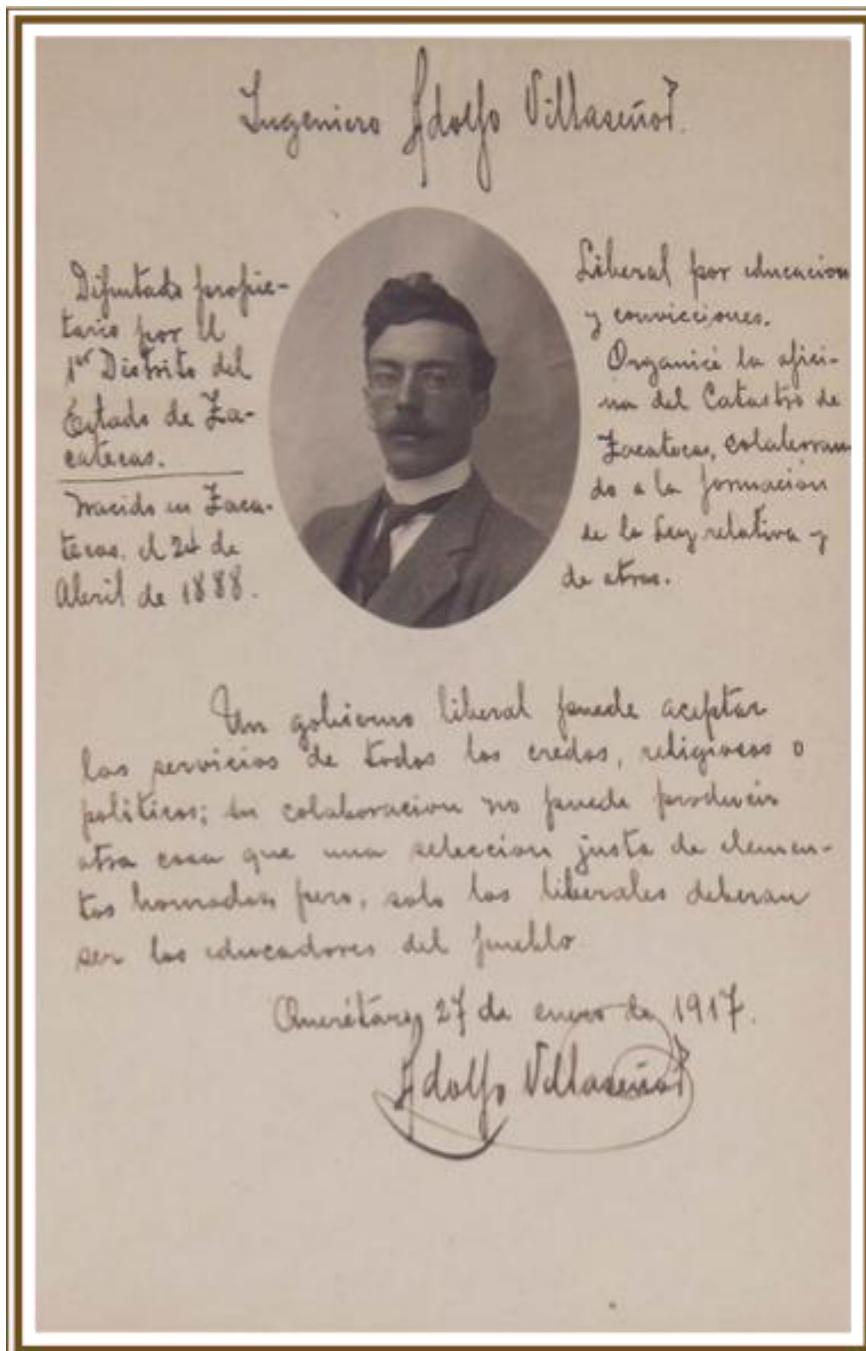 Ingeniero Adolfo Villaseñor.
Diputado propie-
tario por el
1er Distrito del
Estado de Za-
catecas.
Nacido en Zaca-
tecas, el 24 de
Abril de 1888.
Liberal por educacion
y convicciones.
Organicé la ofici-
na del Catastro de
Zacatecas, colaboran
do a la formacion
de la Ley relativa y
de otras.
Un gobierno liberal puede aceptar
los servicios de todos los credos, religiosos o
politicos; su colaboracion no puede producir
otra cosa que una seleccion justa de elemen-
tos honrados pero, solo los liberales deberan
ser los educadores del pueblo
Querétaro, 27 de enero de 1917.
Adolfo Villaseñor